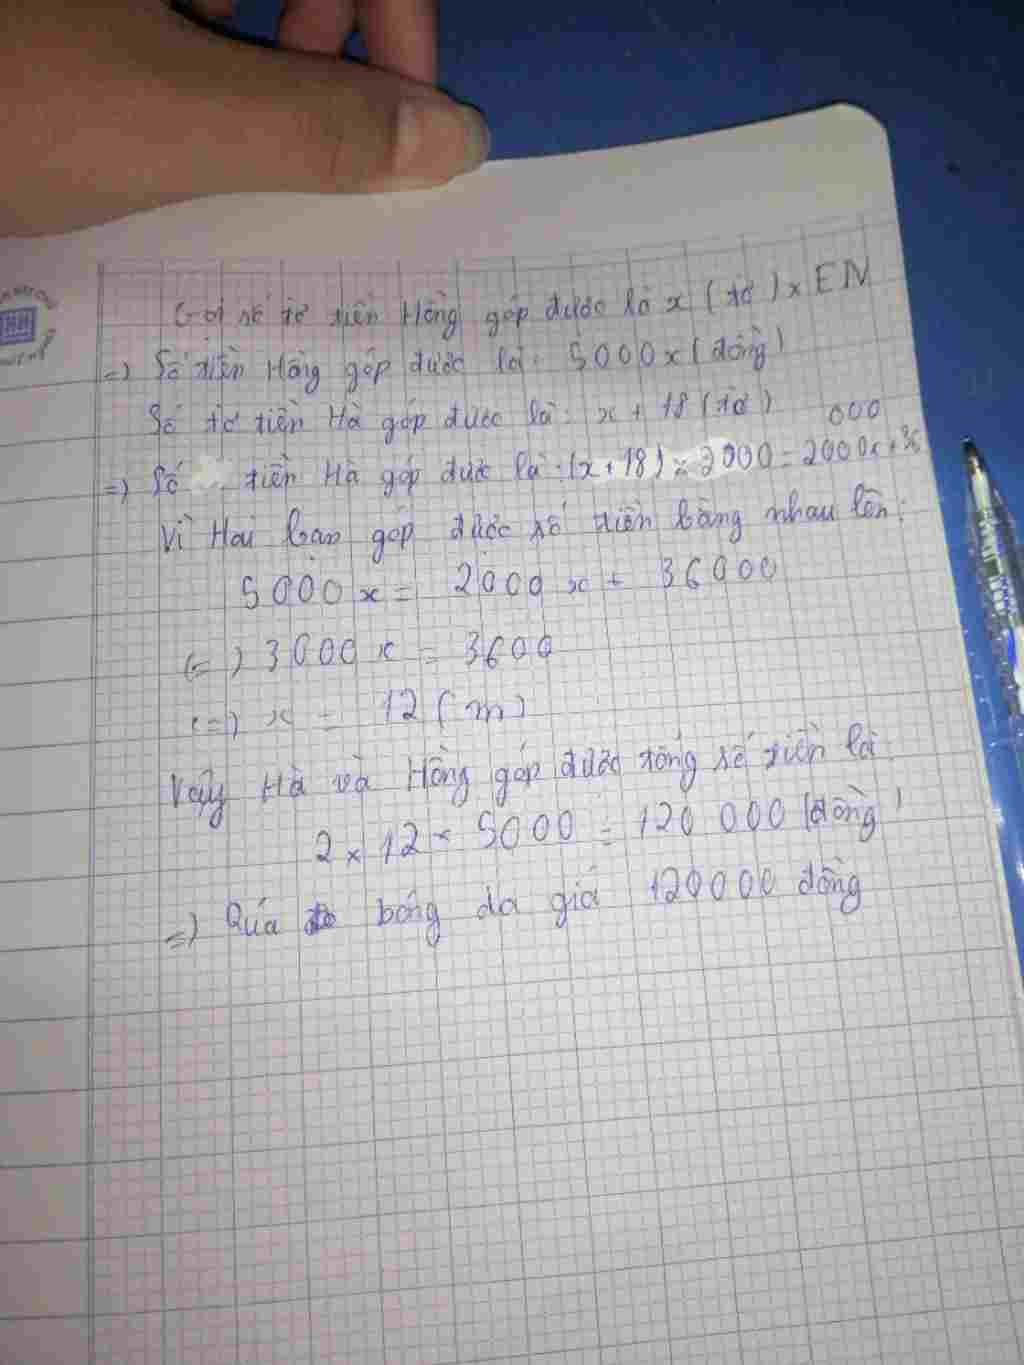 Gọi số tờ tiền Hồng góp được là x (tờ) x EN
=) Số tiền Hồng góp được là: 5000x (đồng)
Số tờ tiền Hà góp được là: x + 18 (tờ)
000
=) Số tiền Hà góp được là: (x + 18) x 2000 = 2000x + 36
Vì Hai bạn góp được số tiền bằng nhau lên:
5000 x = 2000 x + 36000
(=) 3000 x = 3600
(=) x = 12 (m)
Vậy Hà và Hồng góp được tổng số tiền là
2 x 12 x 5000 = 120 000 (đồng)
=) Qúa bóng da giá 120000 đồng